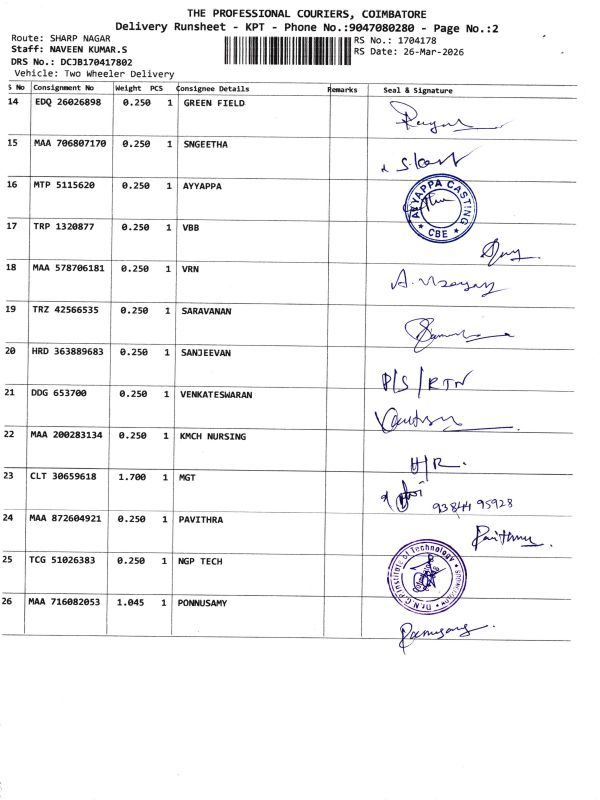 THE PROFESSIONAL COURIERS, COIMBATORE
Delivery Runsheet - KPT - Phone No.:9047080280 - Page No.:2
Route: SHARP NAGAR
RS No.: 1704178
Staff: NAVEEN KUMAR.S
RS Date: 26-Mar-2026
DRS No.: DCJB170417802
Vehicle: Two Wheeler Delivery
S No Consignment No Weight PCS Consignee Details Remarks Seal & Signature
14 EDQ 26026898 0.250 1 GREEN FIELD
15 MAA 706807170 0.250 1 SNGEETHA
16 MTP 5115620 0.250 1 AYYAPPA
AYYAPPA CASTING * CBE *
17 TRP 1320877 0.250 1 VBB
18 MAA 578706181 0.250 1 VRN
19 TRZ 42566535 0.250 1 SARAVANAN
20 HRD 363889683 0.250 1 SANJEEVAN
P/S/RTN
21 DDG 653700 0.250 1 VENKATESWARAN
22 MAA 200283134 0.250 1 KMCH NURSING
H/R.
23 CLT 30659618 1.700 1 MGT
93844 95928
24 MAA 872604921 0.250 1 PAVITHRA
Pavithra.
25 TCG 51026383 0.250 1 NGP TECH
Dr.N.G.P Institute of Technology
26 MAA 716082053 1.045 1 PONNUSAMY